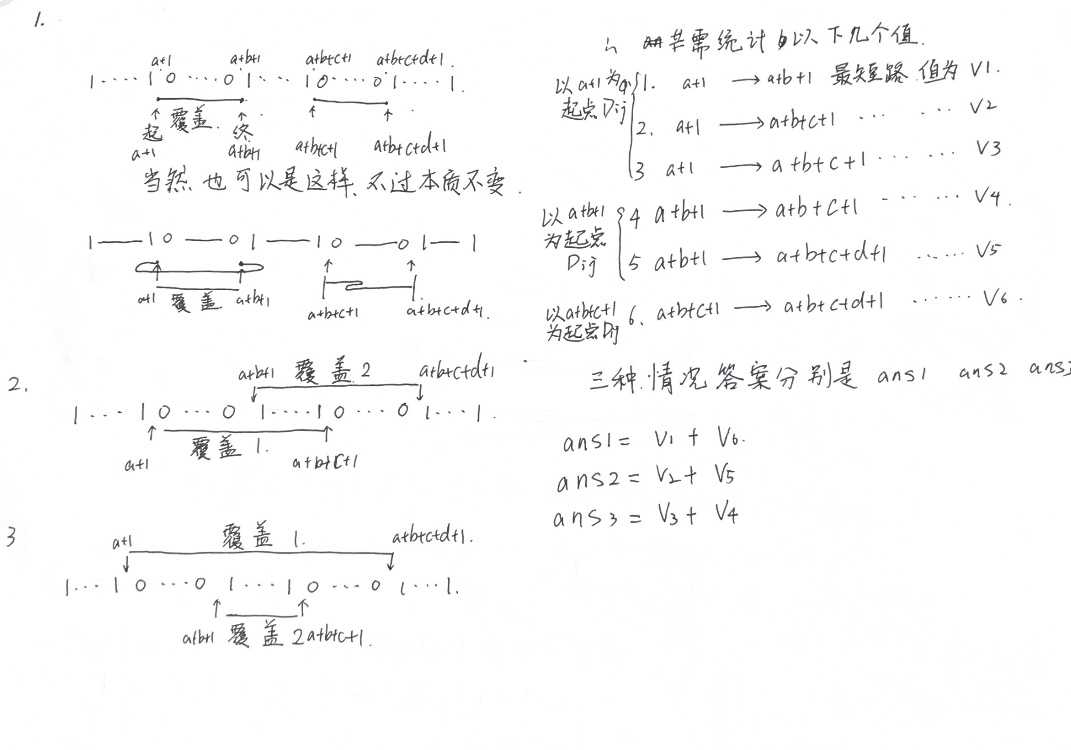 1.
a+1 a+b+1 a+b+c+1 a+b+c+d+1.
1 ···· 1 0 ···· 0 1 ··· 1 0 ···· 0 1 ··· 1
覆盖.
起 终
a+1 a+b+1 a+b+c+1 a+b+c+d+1
当然也可以是这样、不过本质不变.
1 — 1 0 — 0 1 — 1 0 — 0 1 — 1
a+1 覆盖 a+b+1 a+b+c+1 a+b+c+d+1.
2.
a+b+1 覆盖 2 a+b+c+d+1
1 ··· 1 0 ··· 0 1 ···· 1 0 ··· 0 1 ··· 1.
覆盖 1.
a+1 a+b+c+1
3
a+1 覆盖 1. a+b+c+d+1.
1 ··· 1 0 ··· 0 1 ···· 1 0 ··· 0 1 ··· 1.
a+b+1 覆盖 2 a+b+c+1.
共需统计以下几个值.
以 a+1 为
起点 Dij
1. a+1 → a+b+1 最短路 值为 V1.
2. a+1 → a+b+c+1 ··· ··· V2
3 a+1 → a+b+c+1 ··· ··· V3
以 a+b+1
为起点
Dij
4 a+b+1 → a+b+c+1 ··· ··· V4.
5 a+b+1 → a+b+c+d+1 ······ V5
以a+b+c+1
为起点Dij
6. a+b+c+1 → a+b+c+d+1 ······ V6.
三种情况答案分别是 ans1 ans2 ans3
ans1 = V1 + V6.
ans2 = V2 + V5
ans3 = V3 + V4